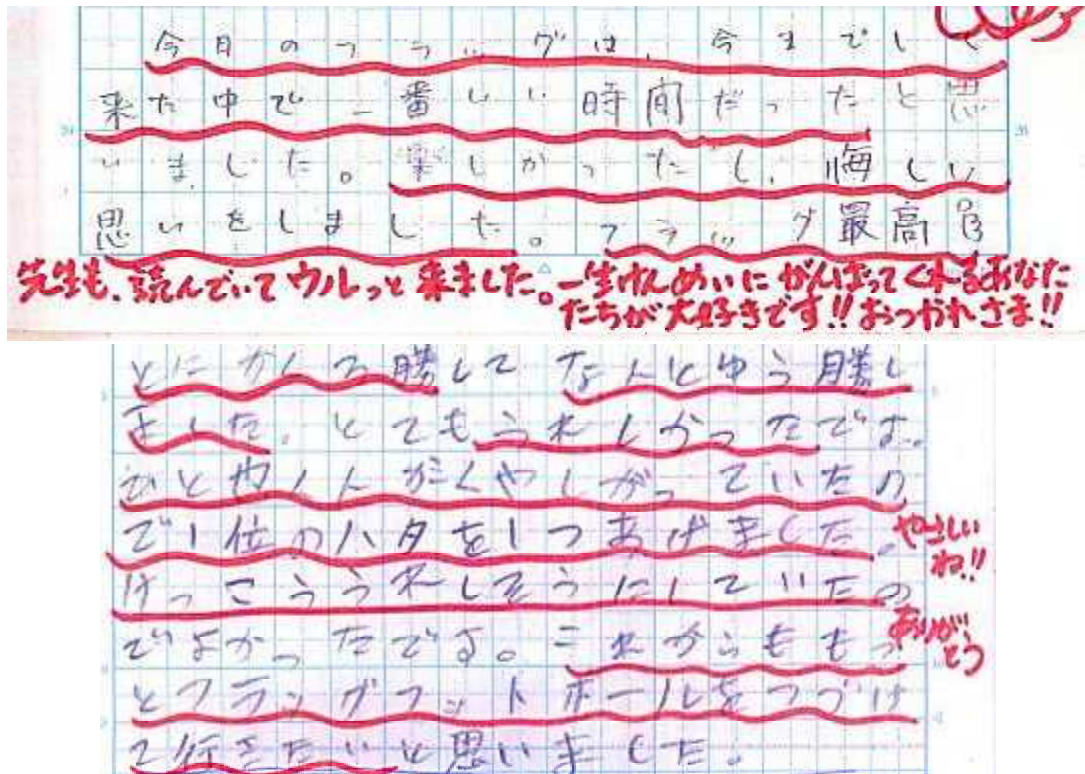 今日のフラッグは、今までして
来た中で一番いい時間だったと思
いました。楽しかったし、悔しい
思いをしました。フラッグ最高
先生も、読んでいてウルっと来ました。一生けんめいにがんばってくれるあなた
たちが大好きです!!おつかれさま!!
勝して なんとゆう勝し
ました。とてもうれしかったです。
がくやしがっていたの
で1位のハタを1つあげました。
やさしい
ね!!
けっこううれしそうにしていたの
ありが
とう
でよかったです。これからももっ
とフラッグフットボールをつづけ
て行きたいと思いました。